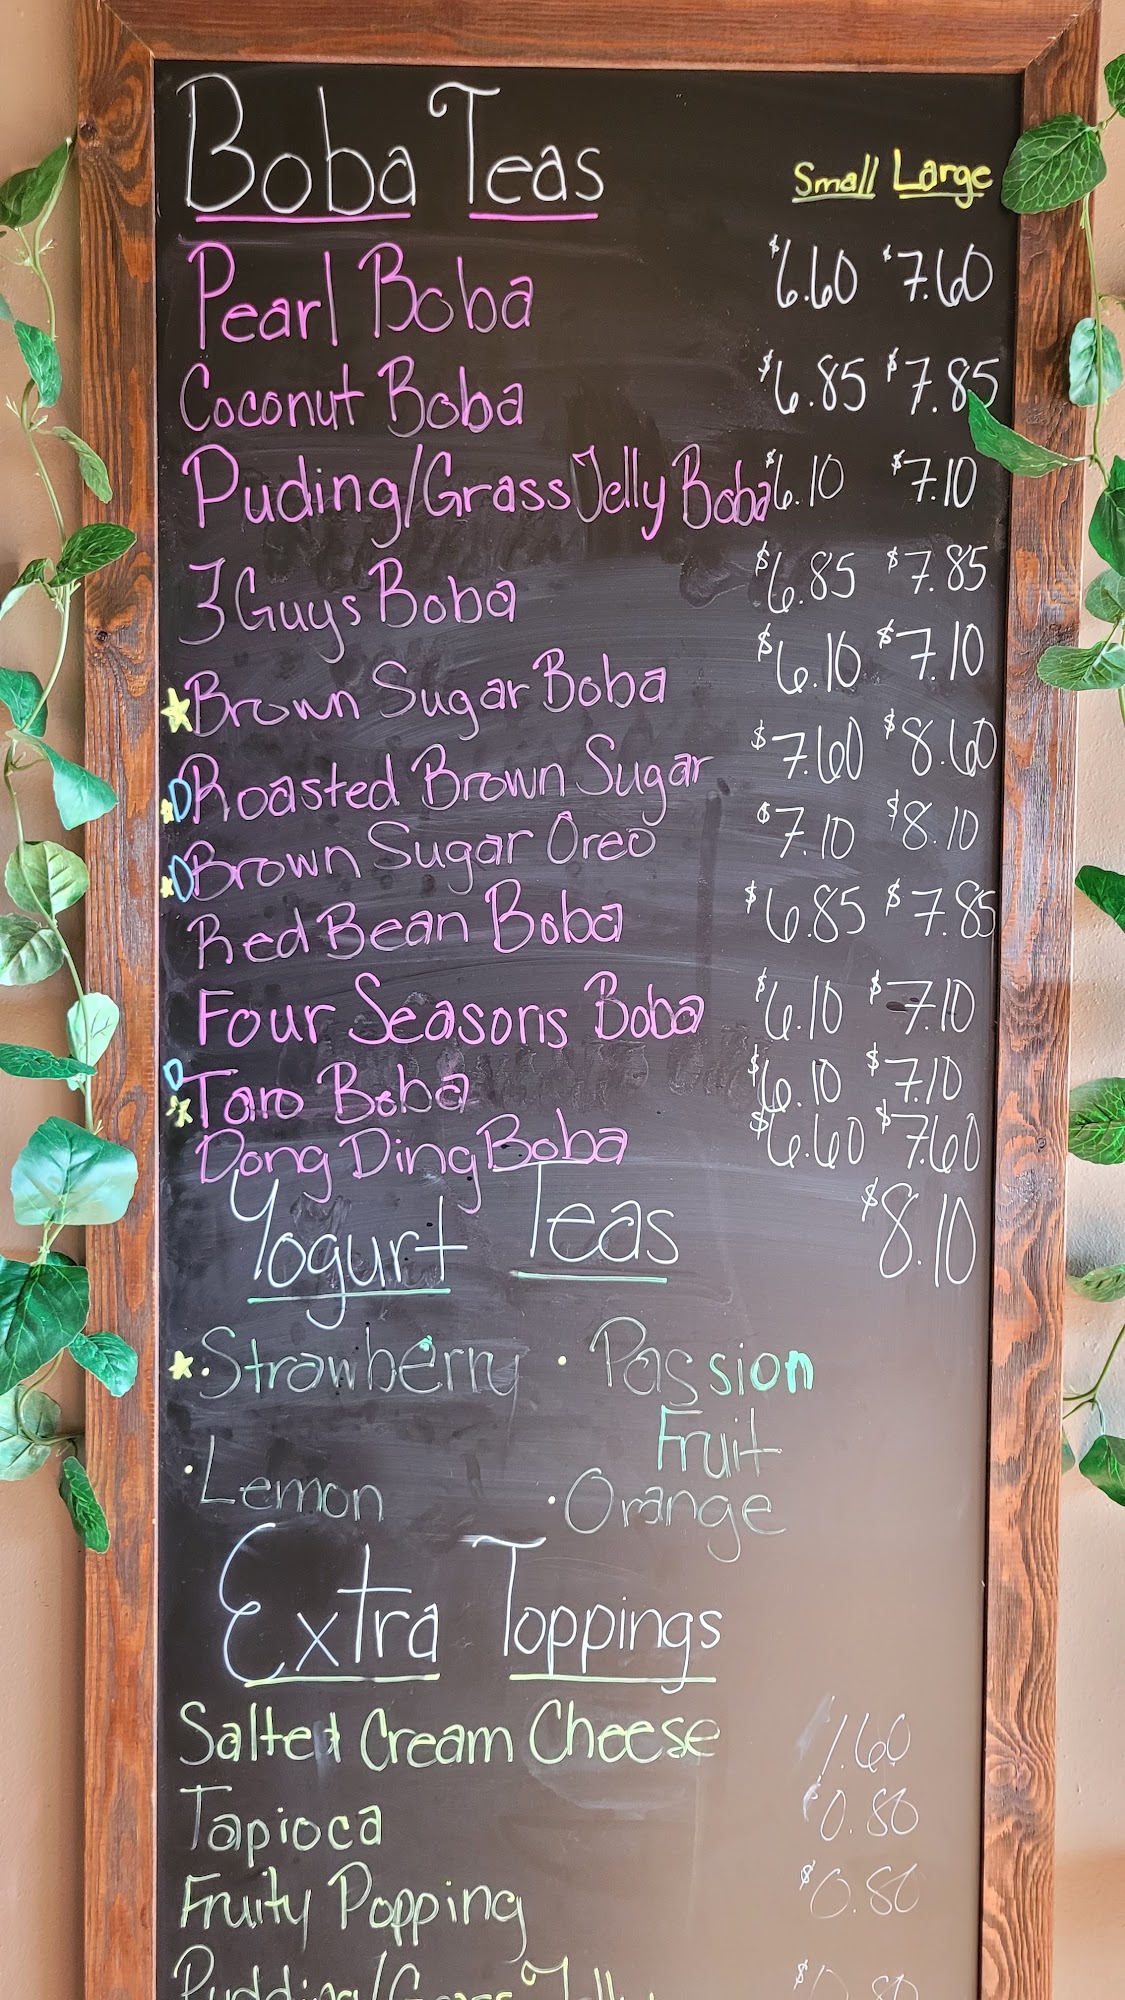 Boba Teas Small Large
Pearl Boba $6.60 $7.60
Coconut Boba $6.85 $7.85
Puding/Grass Jelly Boba $6.10 $7.10
3 Guys Boba $6.85 $7.85
Brown Sugar Boba $6.10 $7.10
Roasted Brown Sugar $7.60 $8.60
Brown Sugar Oreo $7.10 $8.10
Red Bean Boba $6.85 $7.85
Four Seasons Boba $6.10 $7.10
Taro Boba $6.10 $7.10
Dong Ding Boba $6.60 $7.60
Yogurt Teas $8.10
· Strawberry · Passion
Fruit
· Lemon · Orange
Extra Toppings
Salted Cream Cheese 1.60
Tapioca $0.80
Fruity Popping $0.80
Pudding/Grass Jelly $0.80